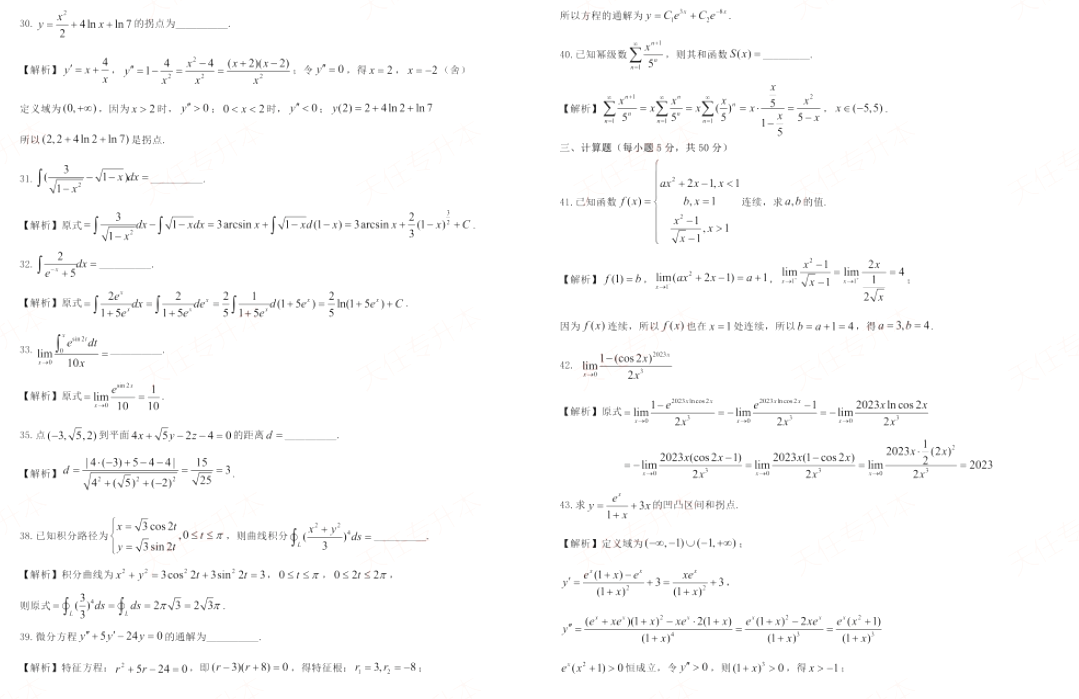 30. y = x²/2 + 4 ln x + ln 7 的拐点为__________.
【解析】y′ = x + 4/x ，y″ = 1 − 4/x² = (x² − 4)/x² = (x + 2)(x − 2)/x² ；令 y″ = 0 ，得 x = 2 ，x = −2（舍）
定义域为 (0, +∞) ，因为 x > 2 时，y″ > 0 ；0 < x < 2 时，y″ < 0 ；y(2) = 2 + 4 ln 2 + ln 7
所以 (2, 2 + 4 ln 2 + ln 7) 是拐点.
31. ∫(3/√(1 − x²) − √(1 − x))dx = __________.
【解析】原式 = ∫ 3/√(1 − x²) dx − ∫√(1 − x)dx = 3 arcsin x + ∫√(1 − x)d(1 − x) = 3 arcsin x + 2/3 (1 − x)^(3/2) + C .
32. ∫ 2/(e^(−x) + 5) dx = __________.
【解析】原式 = ∫ 2e^x/(1 + 5e^x) dx = ∫ 2/(1 + 5e^x) de^x = 2/5 ∫ 1/(1 + 5e^x) d(1 + 5e^x) = 2/5 ln(1 + 5e^x) + C .
33. lim_(x→0) ∫_0^x e^(sin 2t) dt / 10x = __________.
【解析】原式 = lim_(x→0) e^(sin 2x)/10 = 1/10 .
35. 点 (−3, √5, 2) 到平面 4x + √5y − 2z − 4 = 0 的距离 d = __________.
【解析】d = |4·(−3) + 5 − 4 − 4| / √(4² + (√5)² + (−2)²) = 15/√25 = 3 .
38. 已知积分路径为 { x = √3 cos 2t, y = √3 sin 2t , 0 ≤ t ≤ π ，则曲线积分 ∮_L ((x² + y²)/3)⁴ ds = __________.
【解析】积分曲线为 x² + y² = 3cos² 2t + 3sin² 2t = 3 ，0 ≤ t ≤ π ，0 ≤ 2t ≤ 2π ，
则原式 = ∮_L (3/3)⁴ ds = ∮_L ds = 2π√3 = 2√3π .
39. 微分方程 y″ + 5y′ − 24y = 0 的通解为__________.
【解析】特征方程：r² + 5r − 24 = 0 ，即 (r − 3)(r + 8) = 0 ，得特征根：r₁ = 3, r₂ = −8 ；
所以方程的通解为 y = C₁e^(3x) + C₂e^(−8x) .
40. 已知幂级数 ∑_(n=1)^∞ x^(n+1)/5^n ，则其和函数 S(x) = __________.
【解析】∑_(n=1)^∞ x^(n+1)/5^n = x∑_(n=1)^∞ x^n/5^n = x∑_(n=1)^∞ (x/5)^n = x · (x/5)/(1 − x/5) = x²/(5 − x) ，x ∈ (−5, 5) .
三、计算题（每小题 5 分，共 50 分）
41. 已知函数 f(x) = { ax² + 2x − 1, x < 1 ; b, x = 1 ; (x² − 1)/(√x − 1), x > 1 连续，求 a, b 的值.
【解析】f(1) = b ，lim_(x→1⁻)(ax² + 2x − 1) = a + 1 ，lim_(x→1⁺) (x² − 1)/(√x − 1) = lim_(x→1⁺) 2x/(1/(2√x)) = 4 ；
因为 f(x) 连续，所以 f(x) 也在 x = 1 处连续，所以 b = a + 1 = 4 ，得 a = 3, b = 4 .
42. lim_(x→0) (1 − (cos 2x)^(2023x))/2x³
【解析】原式 = lim_(x→0) (1 − e^(2023x ln cos 2x))/2x³ = −lim_(x→0) (e^(2023x ln cos 2x) − 1)/2x³ = −lim_(x→0) 2023x ln cos 2x/2x³
= −lim_(x→0) 2023x(cos 2x − 1)/2x³ = lim_(x→0) 2023x(1 − cos 2x)/2x³ = lim_(x→0) (2023x · 1/2 (2x)²)/2x³ = 2023
43. 求 y = e^x/(1 + x) + 3x 的凹凸区间和拐点.
【解析】定义域为 (−∞, −1)∪(−1, +∞) ；
y′ = (e^x(1 + x) − e^x)/(1 + x)² + 3 = xe^x/(1 + x)² + 3 ，
y″ = ((e^x + xe^x)(1 + x)² − xe^x · 2(1 + x))/(1 + x)⁴ = (e^x(1 + x)² − 2xe^x)/(1 + x)³ = e^x(x² + 1)/(1 + x)³
e^x(x² + 1) > 0 恒成立，令 y″ > 0 ，则 (1 + x)³ > 0 ，得 x > −1 ；